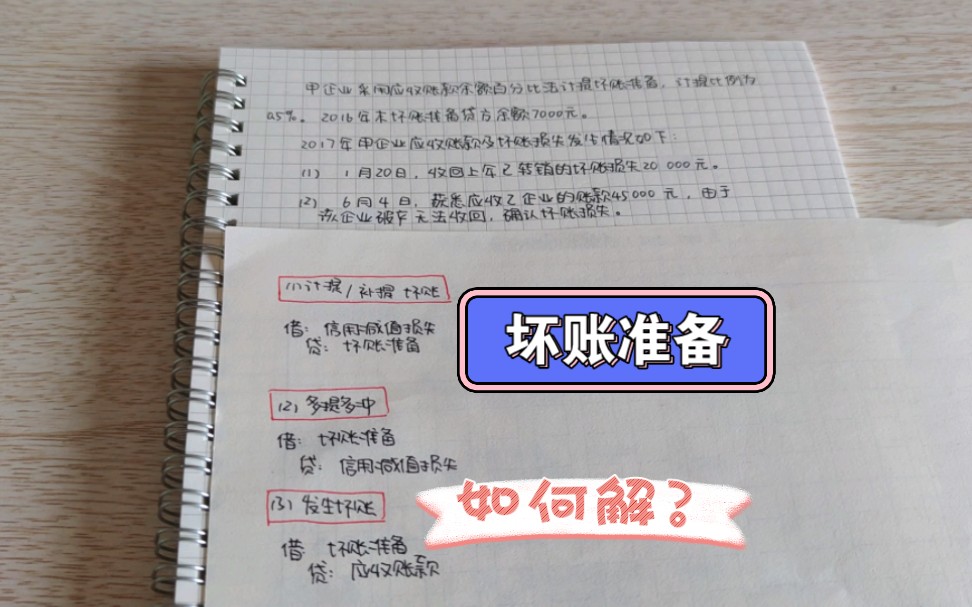 甲企业采用应收账款余额百分比法计提坏账准备，计提比例为
0.5%。2016年末坏账准备贷方余额7000元。
2017年甲企业应收账款及坏账损失发生情况如下：
(1) 1月20日，收回上年已转销的坏账损失20 000元。
(2) 6月4日，获悉应收乙企业的账款45000元，由于
该企业破产无法收回，确认坏账损失。
(1)计提/补提 坏账
借：信用减值损失
贷：坏账准备
坏账准备
(2)多提多冲
借：坏账准备
贷：信用减值损失
(3)发生坏账
如何解？
借 坏账准备
贷：应收账款